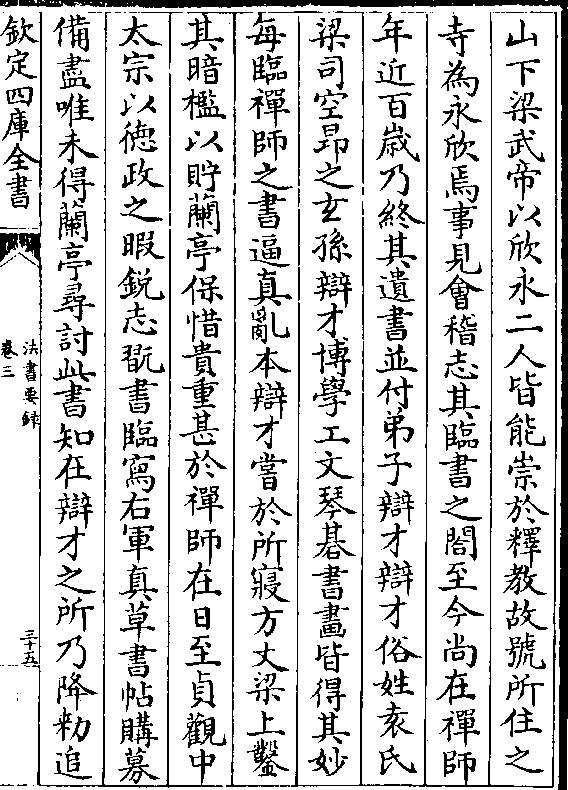 山下梁武帝以欣永二人皆能崇於釋教故號所住之
寺為永欣焉事見會稽志其臨書之閣至今尚在禪師
年近百歲乃終其遺書並付弟子辯才辯才俗姓袁氏
梁司空昂之玄孫辯才博學工文琴碁書畫皆得其妙
每臨禪師之書逼真亂本辯才嘗於所寢方丈梁上鑿
其暗檻以貯蘭亭保惜貴重甚於禪師在日至貞觀中
太宗以德政之暇銳志翫書臨寫右軍真草書帖購募
備盡唯未得蘭亭尋討此書知在辯才之所乃降勑追
欽定四庫全書
法書要錄
卷三
三十五